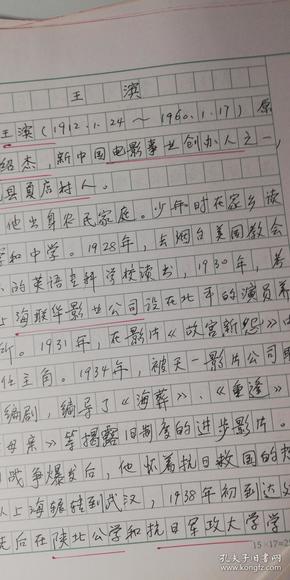 王 滨
王滨(1912.1.24～1960.1.17)原
绍杰,新中国电影事业创办人之一,
县夏店村人。
他出身农民家庭。少年时在家乡读
和中学。1928年,去烟台美国教会
的英语专科学校读书,1930年,考
上海联华影业公司设在北平的演员养
所。1931年,在影片《故宫新怨》中
任主角。1934年,被天一影片公司聘
编剧,编导了《海葬》、《重逢》、
母亲》等揭露旧制度的进步影片。
战争爆发后,他怀着抗日救国的
从上海辗转到武汉,1938年初到达
先后在陕北公学和抗日军政大学学
15×17=2
孔夫子旧书网